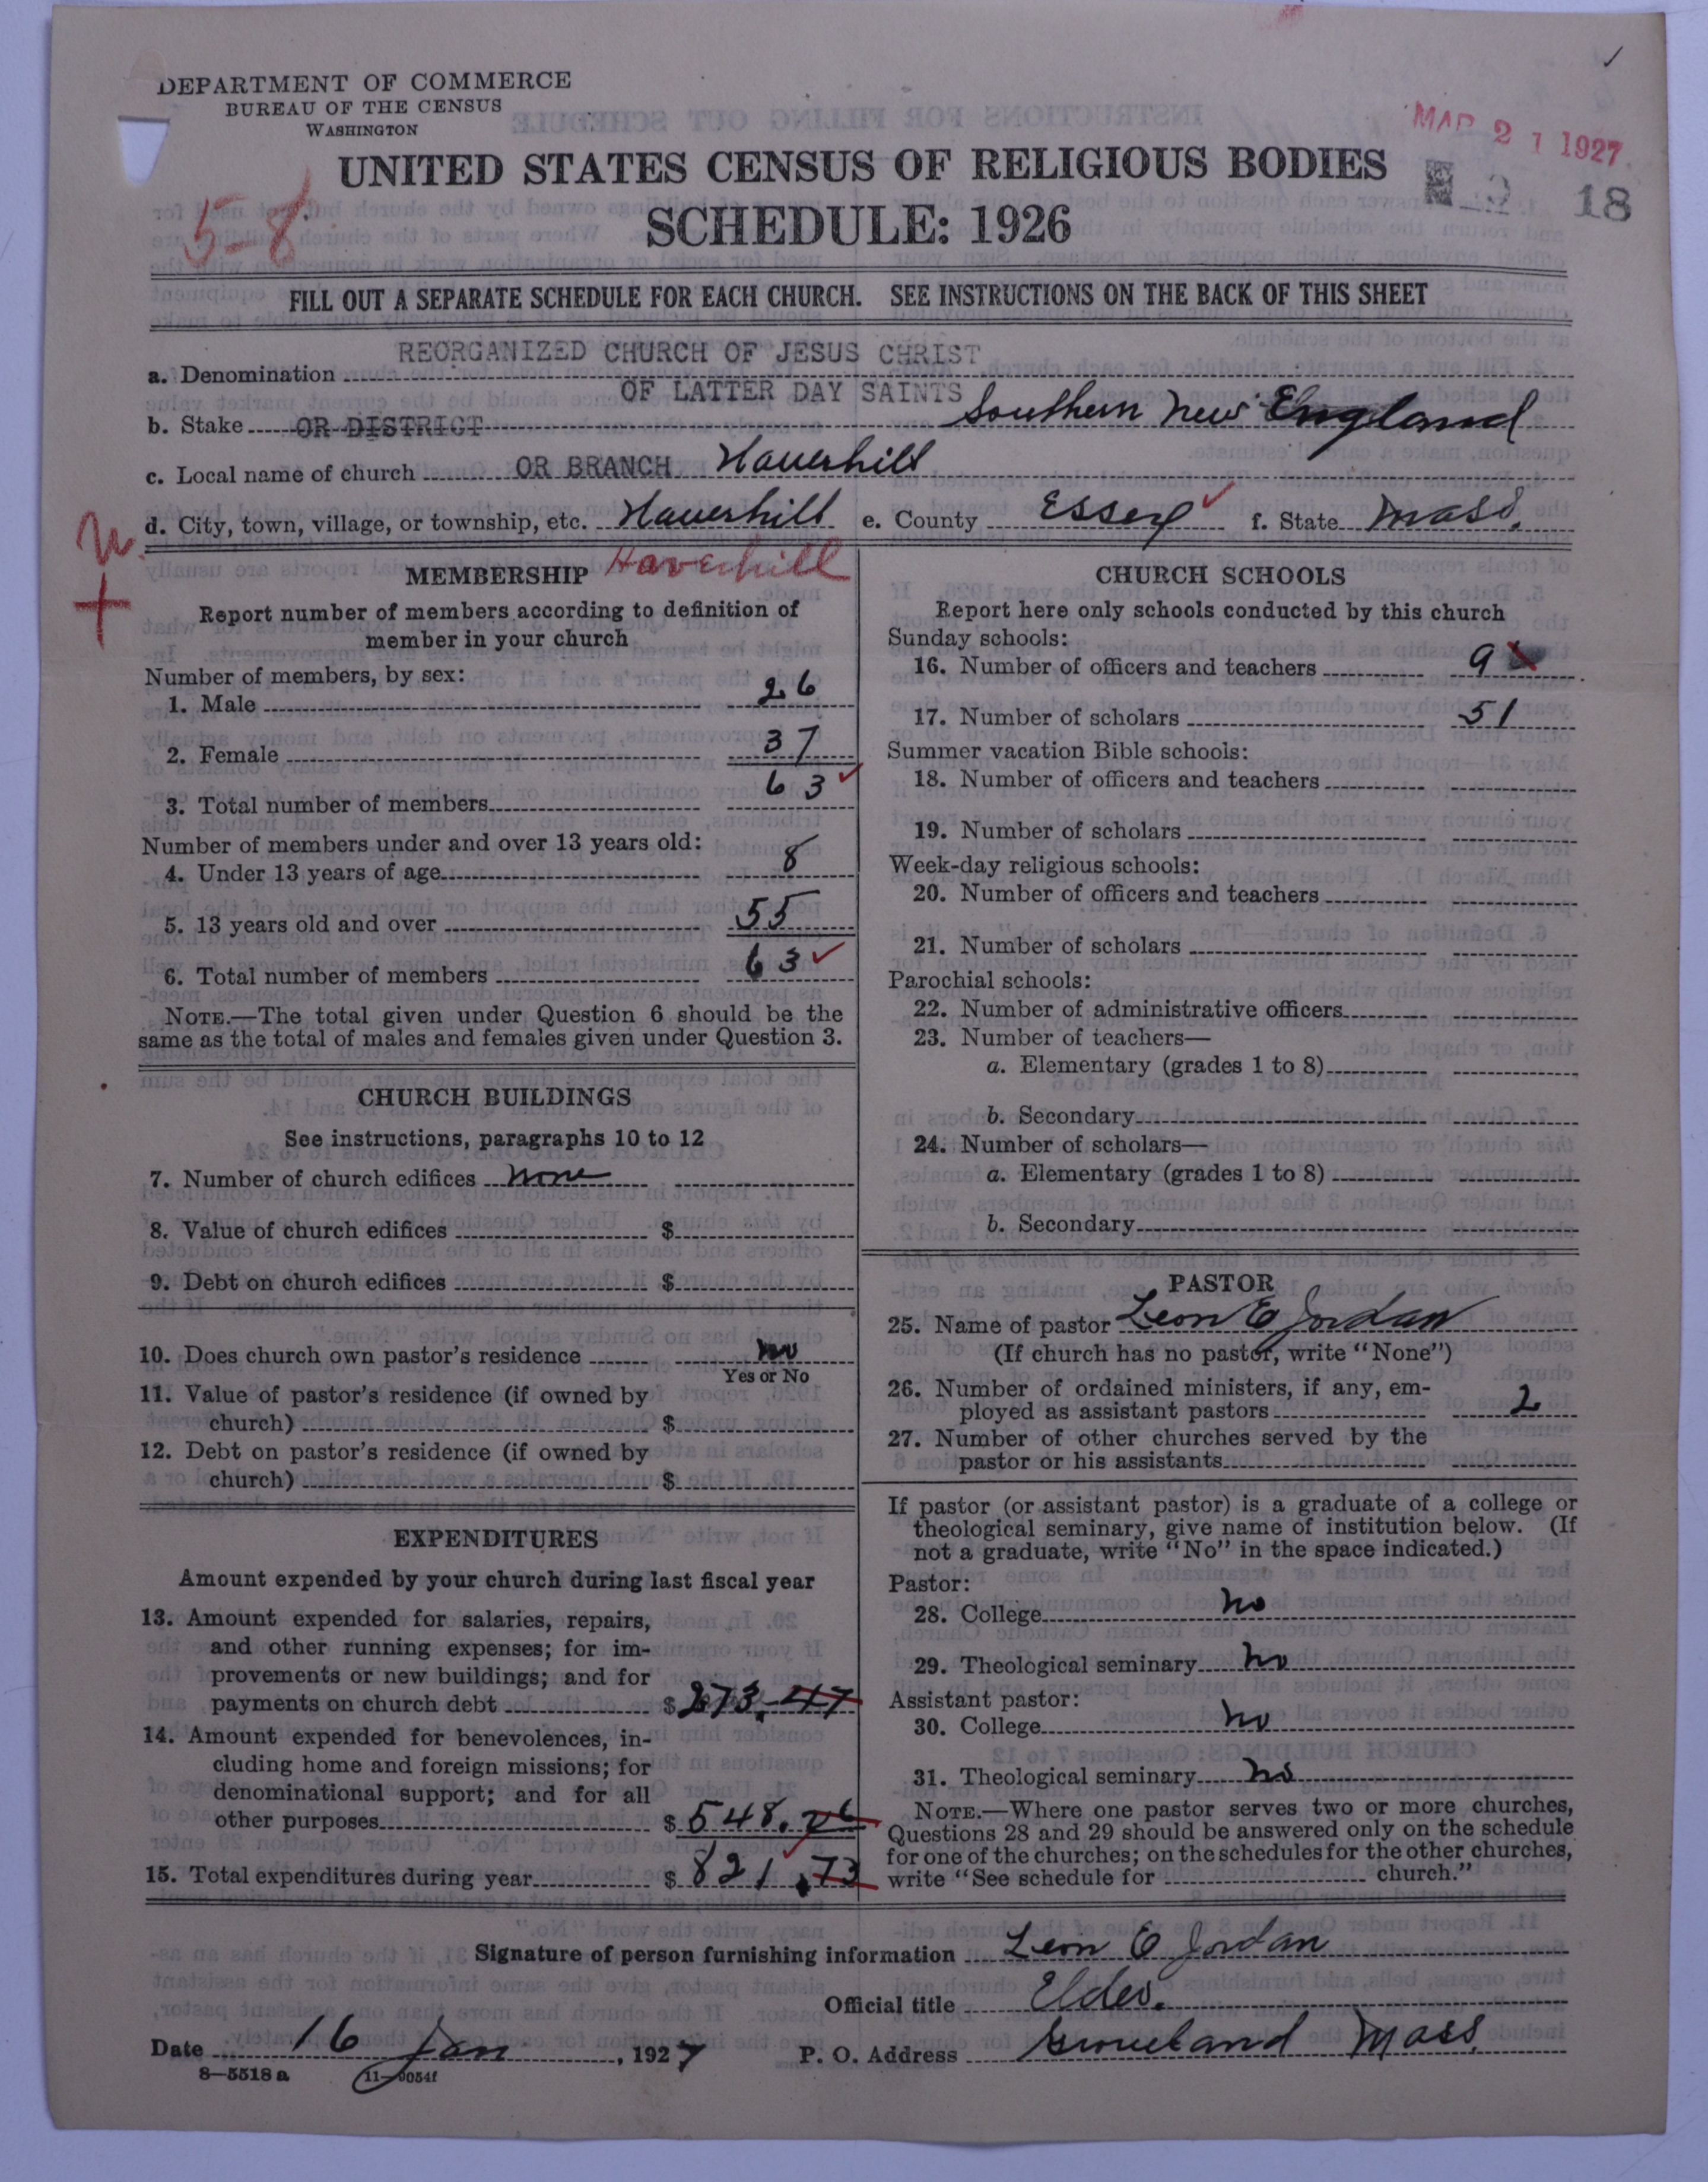 DEPARTMENT OF COMMERCE
BUREAU OF THE CENSUS
WASHINGTON
MAR 21 1927
UNITED STATES CENSUS OF RELIGIOUS BODIES
2 18
5-8
SCHEDULE: 1926
FILL OUT A SEPARATE SCHEDULE FOR EACH CHURCH. SEE INSTRUCTIONS ON THE BACK OF THIS SHEET
a. Denomination REORGANIZED CHURCH OF JESUS CHRIST
OF LATTER DAY SAINTS
b. Stake OR DISTRICT Southern New England
c. Local name of church OR BRANCH Haverhill
d. City, town, village, or township, etc. Haverhill e. County Essex f. State Mass.
MEMBERSHIP Haverhill
Report number of members according to definition of
member in your church
Number of members, by sex:
1. Male 26
2. Female 37
3. Total number of members 63
Number of members under and over 13 years old:
4. Under 13 years of age 8
5. 13 years old and over 55
6. Total number of members 63
NOTE.—The total given under Question 6 should be the
same as the total of males and females given under Question 3.
CHURCH BUILDINGS
See instructions, paragraphs 10 to 12
7. Number of church edifices none
8. Value of church edifices $
9. Debt on church edifices $
10. Does church own pastor's residence no
Yes or No
11. Value of pastor's residence (if owned by
church) $
12. Debt on pastor's residence (if owned by
church) $
EXPENDITURES
Amount expended by your church during last fiscal year
13. Amount expended for salaries, repairs,
and other running expenses; for im-
provements or new buildings; and for
payments on church debt $273.47
14. Amount expended for benevolences, in-
cluding home and foreign missions; for
denominational support; and for all
other purposes $548.26
15. Total expenditures during year $821.73
CHURCH SCHOOLS
Report here only schools conducted by this church
Sunday schools:
16. Number of officers and teachers 9
17. Number of scholars 51
Summer vacation Bible schools:
18. Number of officers and teachers
19. Number of scholars
Week-day religious schools:
20. Number of officers and teachers
21. Number of scholars
Parochial schools:
22. Number of administrative officers
23. Number of teachers—
a. Elementary (grades 1 to 8)
b. Secondary
24. Number of scholars—
a. Elementary (grades 1 to 8)
b. Secondary
PASTOR
25. Name of pastor Leon E Jordan
(If church has no pastor, write "None")
26. Number of ordained ministers, if any, em-
ployed as assistant pastors 2
27. Number of other churches served by the
pastor or his assistants
If pastor (or assistant pastor) is a graduate of a college or
theological seminary, give name of institution below. (If
not a graduate, write "No" in the space indicated.)
Pastor:
28. College no
29. Theological seminary no
Assistant pastor:
30. College no
31. Theological seminary no
NOTE.—Where one pastor serves two or more churches,
Questions 28 and 29 should be answered only on the schedule
for one of the churches; on the schedules for the other churches,
write "See schedule for church."
Signature of person furnishing information Leon E Jordan
Official title Elder.
Date 16 Jan, 1927 P. O. Address Groveland Mass.
8—5518 a 11—9054f